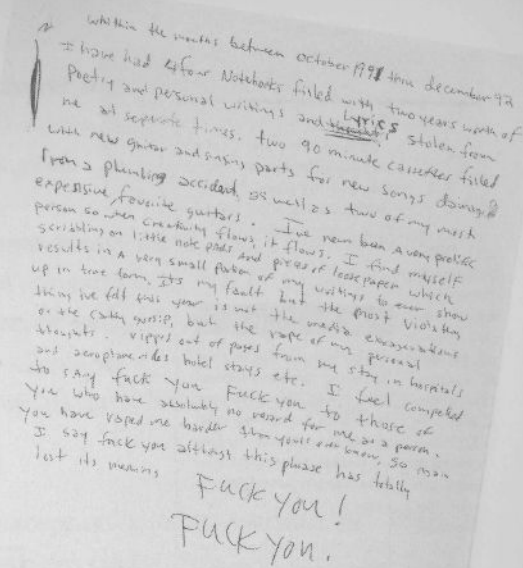 Whithin the months between october 1991 thru december 92
I have had 4 four Notebooks filled with two years worth of
Poetry and personal writings and Lyrics stolen from
me at seperate times. two 90 minute cassettes filled
with new guitar and singing parts for new songs damaged
from a plumbing accident, as well as two of my most
expensive favorite guitars. I've never been a very prolific
person so when creativity flows, it flows. I find myself
scribbling on little note pads and pieces of loose paper which
results in a very small portion of my writings to ever show
up in true form. It's my fault but the most violating
thing ive felt this year is not the media exxagerations
or the catty gossip, but the rape of my personal
thoughts. ripped out of pages from my stay in hospitals
and aeroplane rides hotel stays etc. I feel compelled
to say fuck you Fuck you to those of
you who have absolutely no regard for me as a person.
you have raped me harder than you'll ever know. so again
I say fuck you although this phrase has totally
lost its meaning
FUCK YOU!
FUCK YOU.